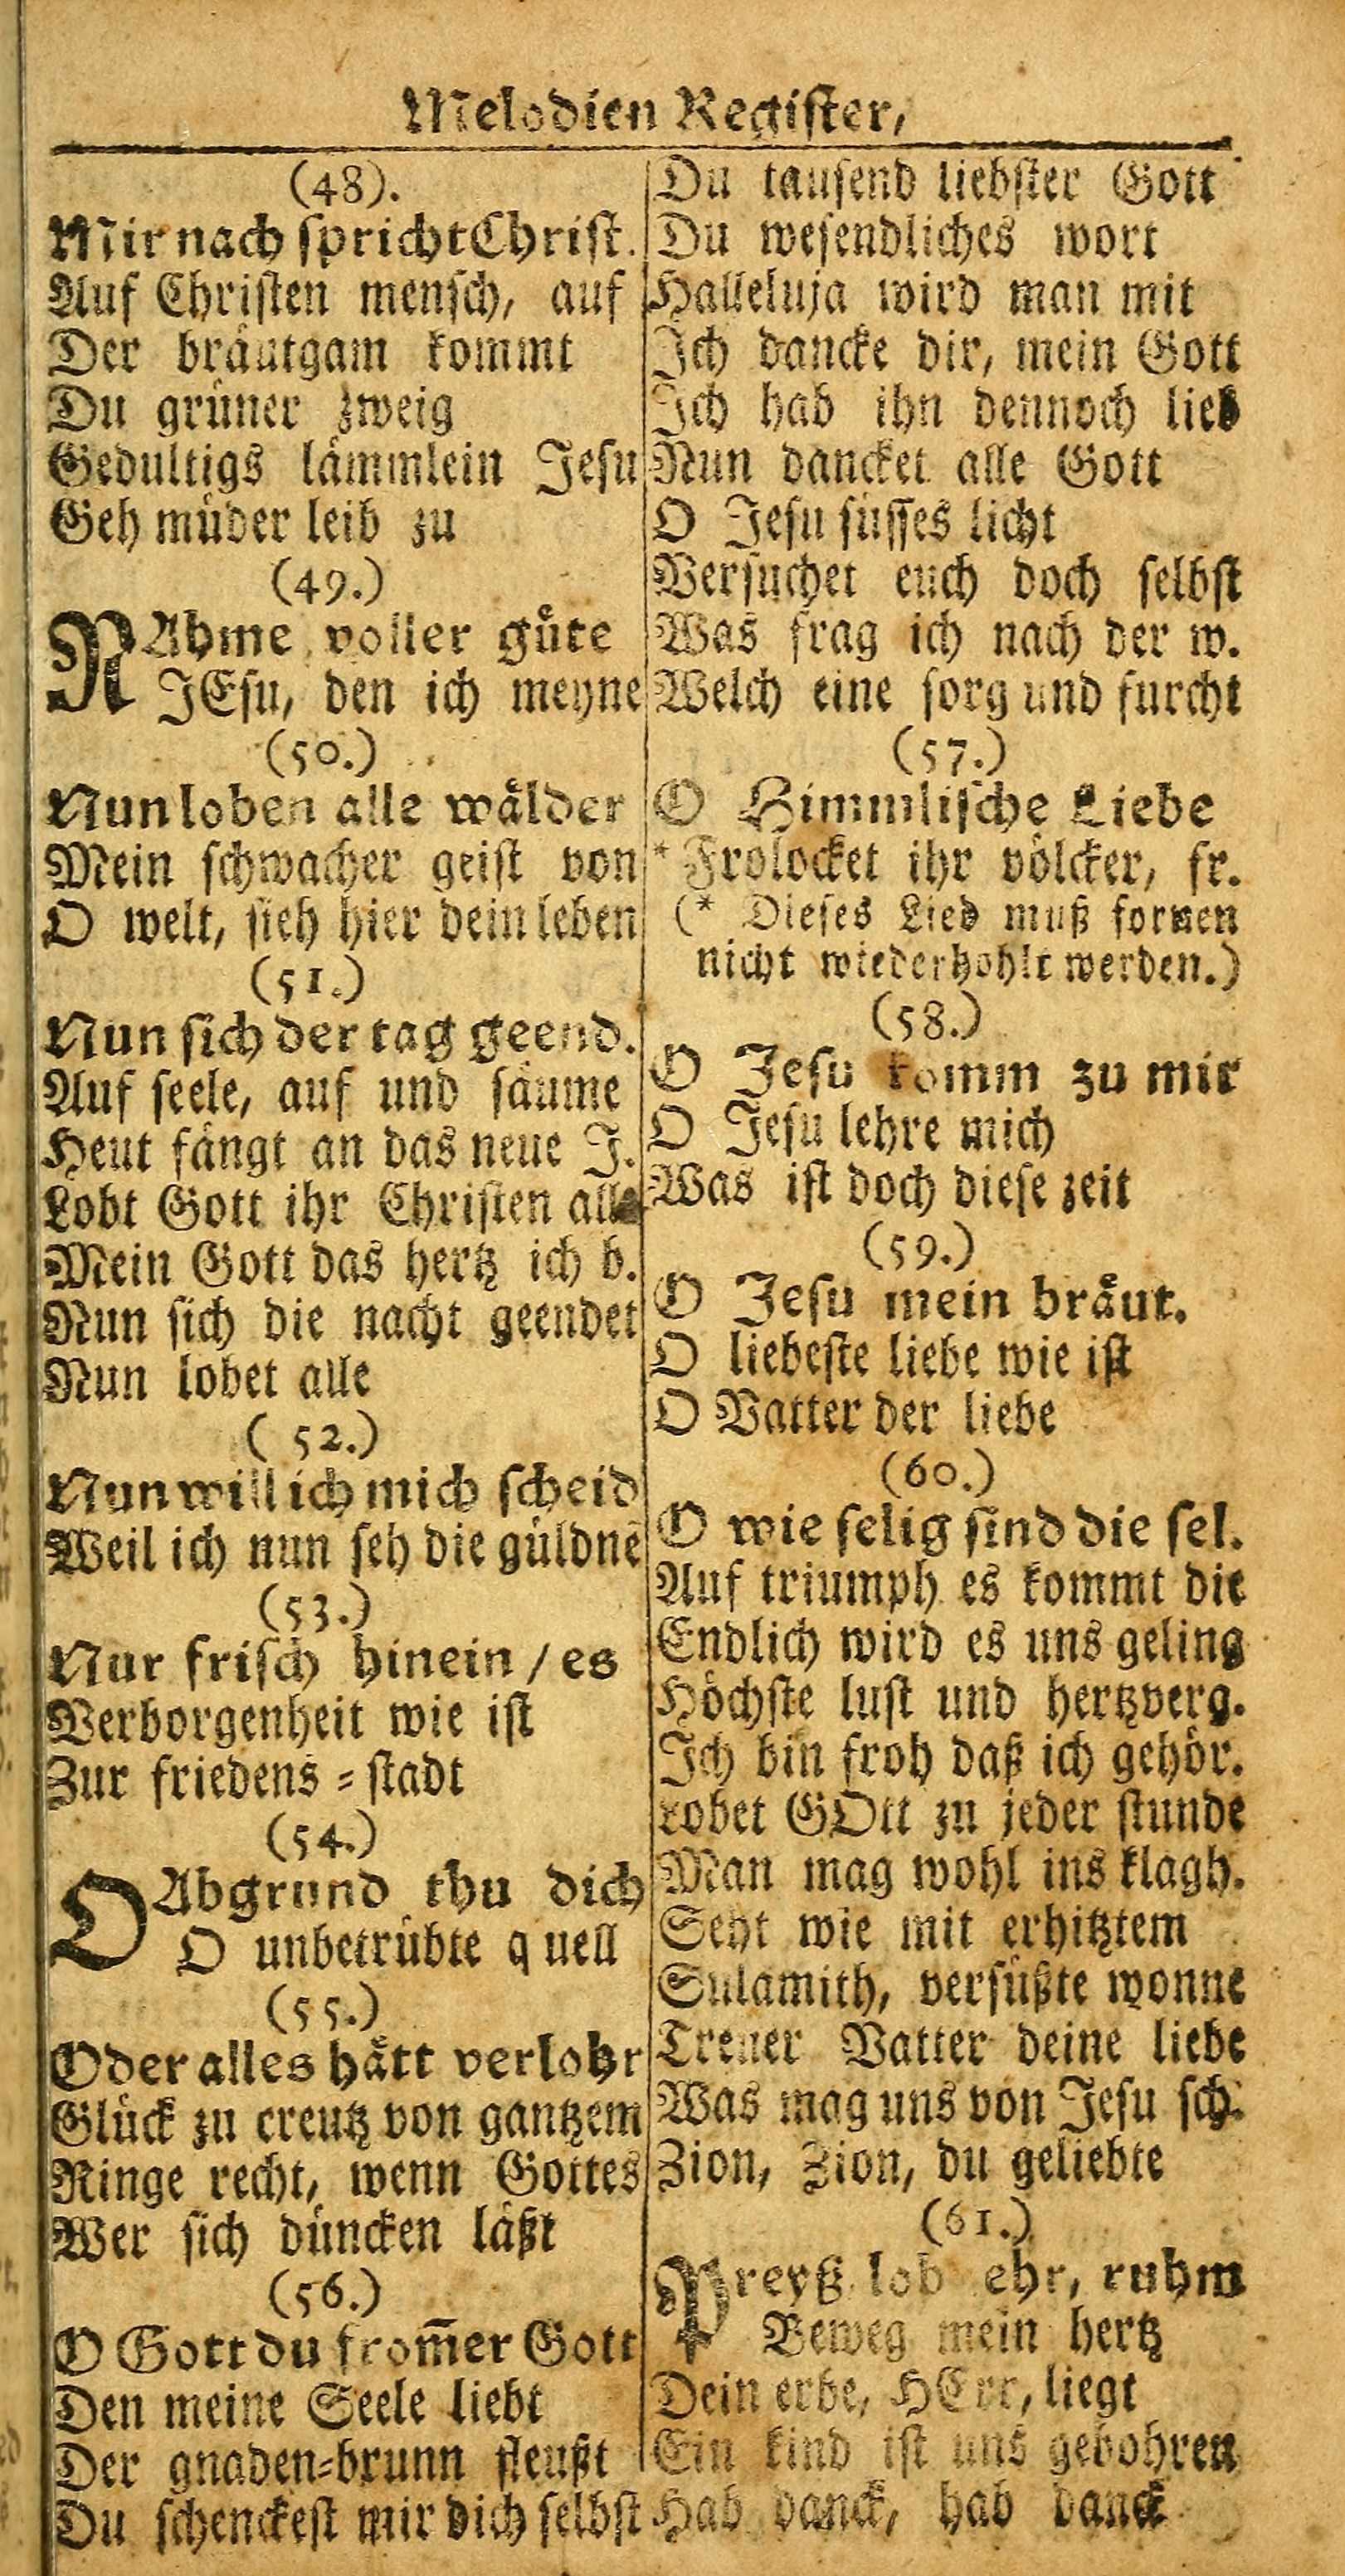 Melodien Register,
(48).
Mir nach spricht Christ.
Auf Christen mensch, auf
Der bräutgam kommt
Du grüner zweig
Gedultigs lämmlein Jesu
Geh müder leib zu
(49.)
NAhme voller güte
JEsu, den ich meyne
(50.)
Nun loben alle wälder
Mein schwacher geist von
O welt, sieh hier dein leben
(51.)
Nun sich der tag geend.
Auf seele, auf und säume
Heut fängt an das neue J.
Lobt Gott ihr Christen alle
Mein Gott das hertz ich b.
Nun sich die nacht geendet
Nun lobet alle
(52.)
Nun will ich mich scheid
Weil ich nun seh die güldnē
(53.)
Nur frisch hinein / es
Verborgenheit wie ist
Zur friedens=stadt
(54.)
O Abgrund thu dich
O unbetrübte quell
(55.)
O der alles hätt verlohr
Glück zu creutz von gantzem
Ringe recht, wenn Gottes
Wer sich düncken läßt
(56.)
O Gott du from̅er Gott
Den meine Seele liebt
Der gnaden=brunn fleußt
Du schenckest mir dich selbst
Du tausend liebster Gott
Du wesendliches wort
Halleluja wird man mit
Ich dancke dir, mein Gott
Ich hab ihn dennoch lieb
Nun dancket alle Gott
O Jesu süsses licht
Versuchet euch doch selbst
Was frag ich nach der w.
Welch eine sorg und furcht
(57.)
O Himmlische Liebe
* Frolocket ihr völcker, fr.
(* Dieses Lied muß fornen
nicht wiederhohlt werden.)
(58.)
O Jesu komm zu mir
O Jesu lehre mich
Was ist doch diese zeit
(59.)
O Jesu mein bräut.
O liebeste liebe wie ist
O Vatter der liebe
(60.)
O wie selig sind die sel.
Auf triumph es kommt die
Endlich wird es uns geling
Höchste lust und hertzverg.
Ich bin froh daß ich gehör.
Lobet GOtt zu jeder stunde
Man mag wohl ins klagh.
Seht wie mit erhitztem
Sulamith, versüßte wonne
Treuer Vatter deine liebe
Was mag uns von Jesu sch.
Zion, Zion, du geliebte
(61.)
Preyß lob ehr, ruhm
Beweg mein hertz
Dein erbe, HErr, liegt
Ein kind ist uns gebohren
Hab danck, hab danck